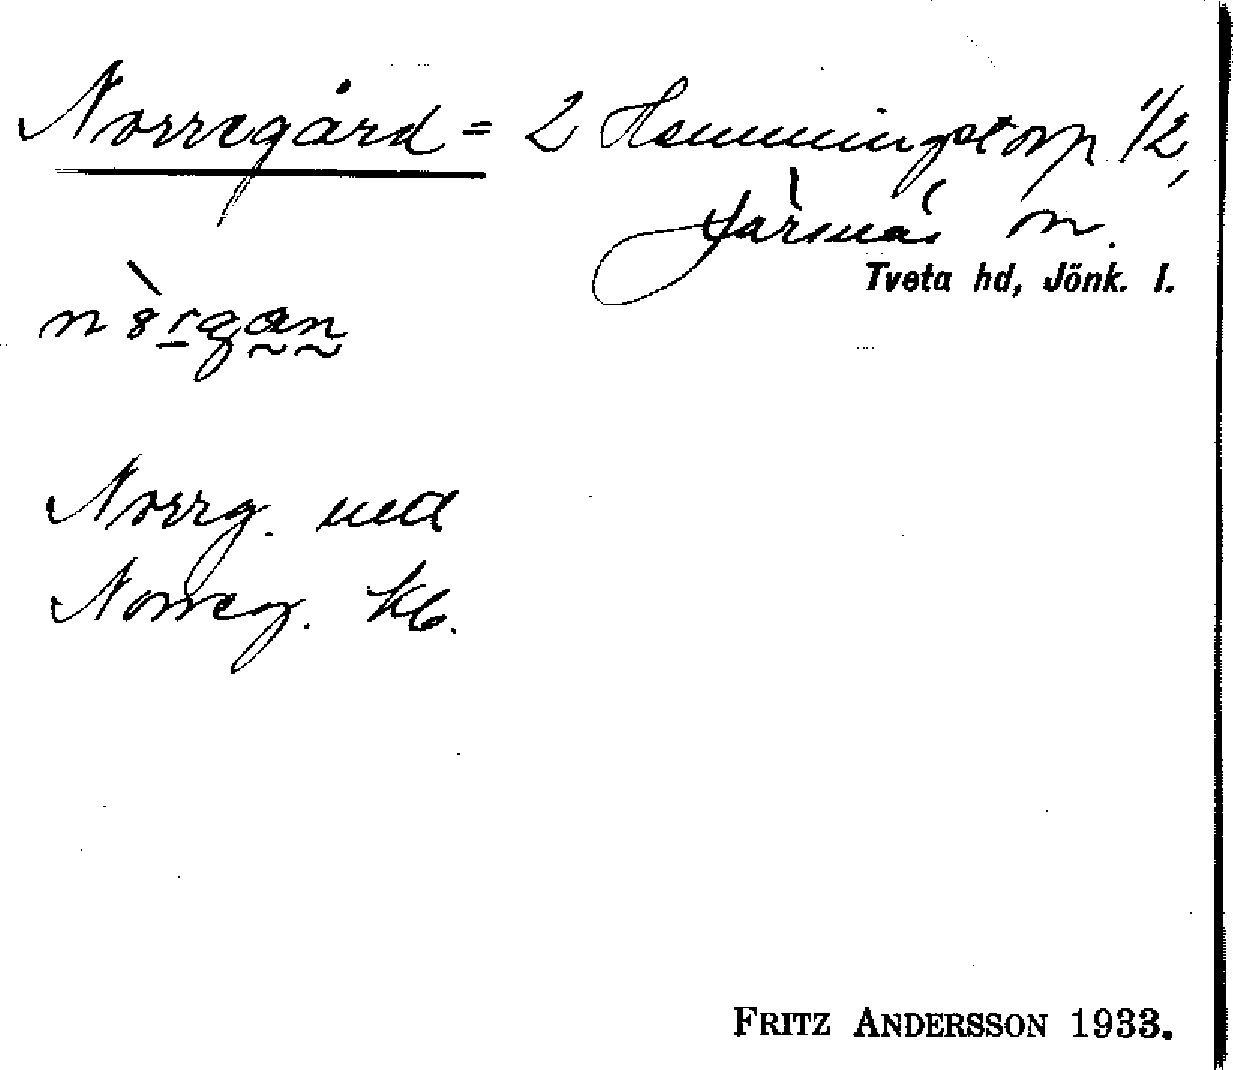 Norregård = 2 Hemmingstorp 1/2,
Järsnäs sn.
Tveta hd, Jönk. l.
Norrg. med
Norreg. kb.
FRITZ ANDERSSON 1933.